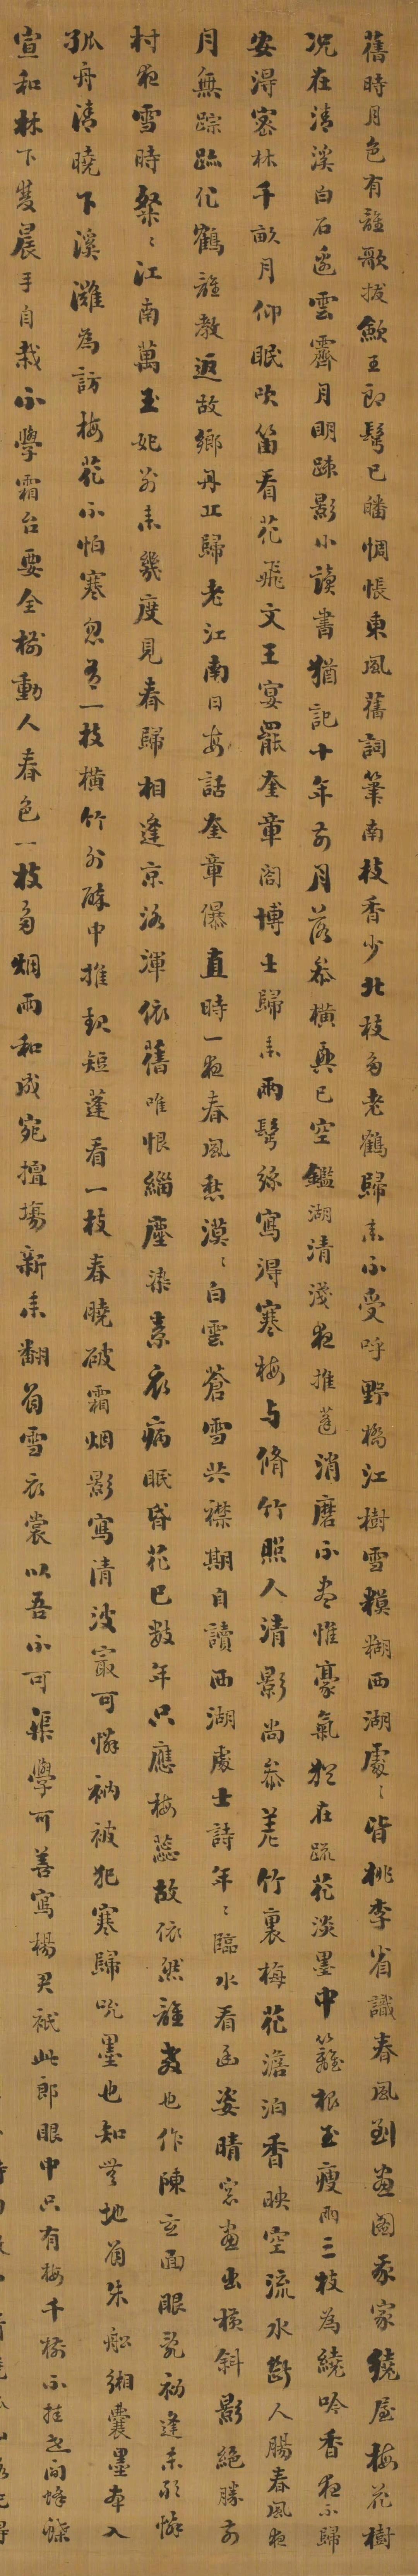 舊時月色有誰歌拔劍王郎鬢已皤惆悵東風舊詞筆南枝香少北枝多老鶴歸來不受呼野橋江樹雪糢糊西湖處處皆桃李省識春風到畫圖我家繞屋梅花樹
況在清溪白石邊雲霽月明疎影小讀書猶記十年前月落參橫興已空鑑湖清淺夜推篷消磨不盡惟豪氣猶在疏花淡墨中籬根玉瘦兩三枝為繞吟香夜不歸
安得密林千畝月仰眠吹笛看花飛文王宴罷奎章閣博士歸來兩鬢絲寫得寒梅与脩竹照人清影尚參差竹裏梅花澹泊香映空流水斷人腸春風夜
月無踪跡化鶴誰教返故鄉丹丘歸老江南日每話奎章儤直時一夜春風愁漠漠白雲蒼雪共襟期自讀西湖處士詩年年臨水看幽姿晴窓畫出橫斜影絕勝前
村夜雪時粲粲江南萬玉妃別來幾度見春歸相逢京洛渾依舊唯恨緇塵染素衣病眠昏花已數年只應梅蕊故依然誰教也作陳玄面眼亂初逢未敢憐
孤舟清曉下溪灘為訪梅花不怕寒忽有一枝橫竹外醉中推起短蓬看一枝春曉破霜烟影寫清波最可憐衲被犯寒歸吮墨也知無地有朱鉛緗囊墨本入
宣和林下雙晨手自栽不學霜台要全樹動人春色一枝多烟雨和成宛擅場新來翻有雪衣裳以吾不可渠學可善寫楊君祇此郎眼中只有梅千樹不掛世間蜂蝶